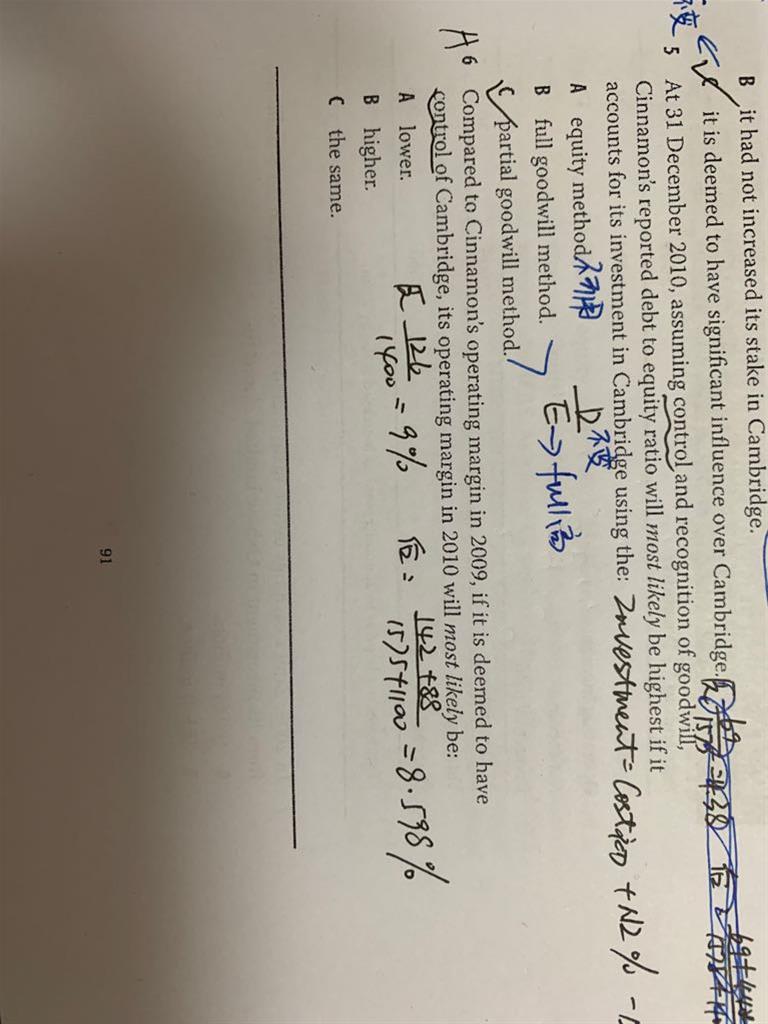 B it had not increased its stake in Cambridge.
C it is deemed to have significant influence over Cambridge.
不变 5 At 31 December 2010, assuming control and recognition of goodwill,
Cinnamon's reported debt to equity ratio will most likely be highest if it
accounts for its investment in Cambridge using the: Investment = Cost
A equity method.
B full goodwill method.
C partial goodwill method.
D 不变
E → full高
A 6 Compared to Cinnamon's operating margin in 2009, if it is deemed to have
control of Cambridge, its operating margin in 2010 will most likely be:
A lower.
B higher.
C the same.
126
1400 = 9%
142 + 88
1575 + 1100 = 8.598%
91